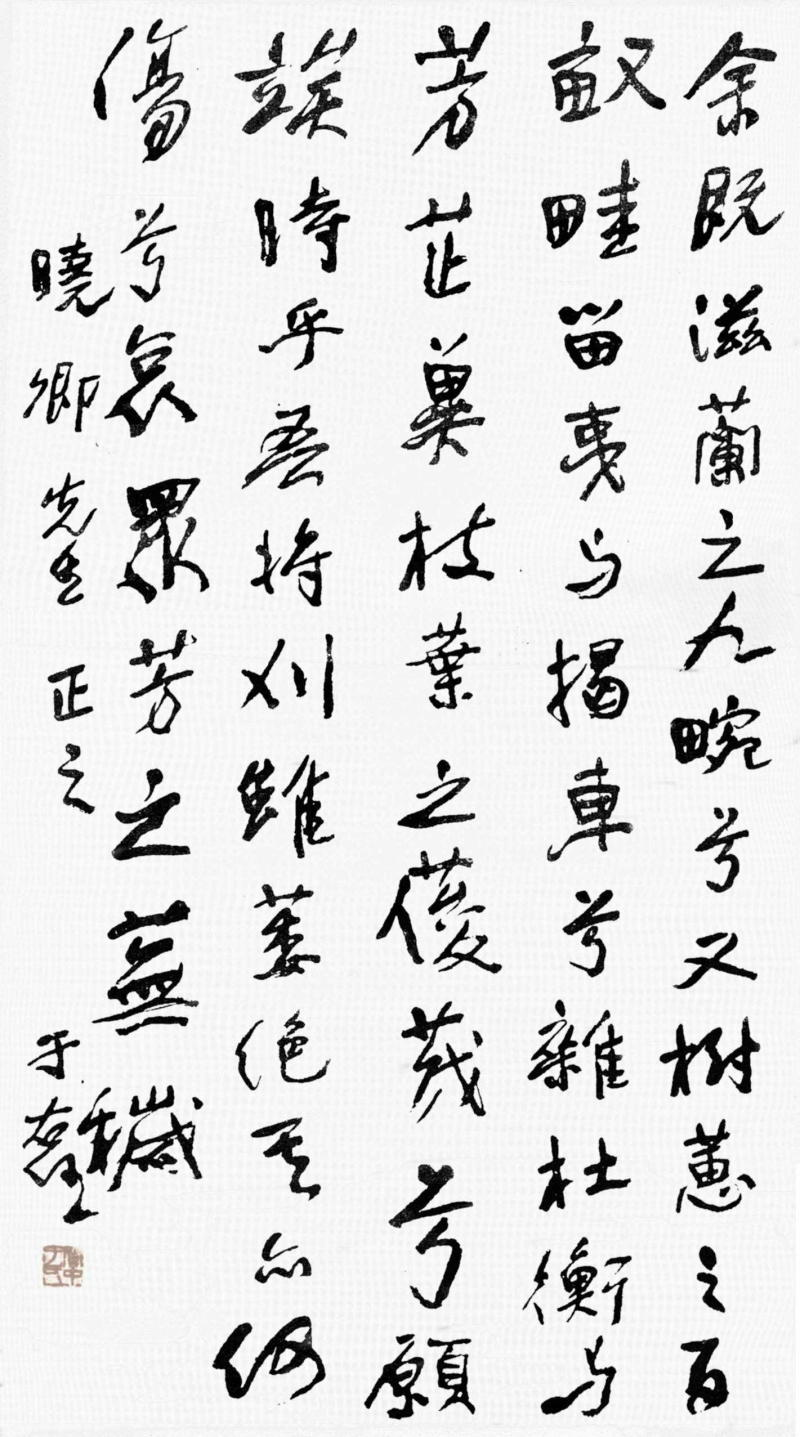 余既滋蘭之九畹兮又樹蕙之百
畝畦留夷与揭車兮雜杜衡与
芳芷冀枝葉之葰茂兮願
竢時乎吾将刈雖萎絶其亦何
傷兮哀眾芳之蕪穢
曉卿先生正之
于右任